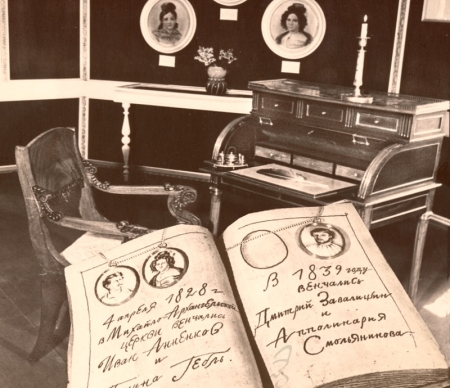 4 апреля 1828 г
в Михайло-Архангельской
церкви венчались
Иван Анненков
и
Полина Гебль.
В 1839 году
венчались
Дмитрий Завалишин
и
Апполинария
Смольянинова.